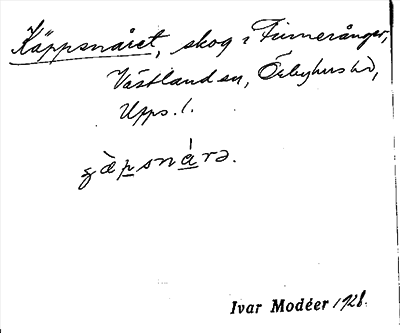 Käppsnåret, skog i Finneränger,
Västland sn, Örbyhus hd,
Upps. l.
gæ̀psnárə.
Ivar Modéer 1926.